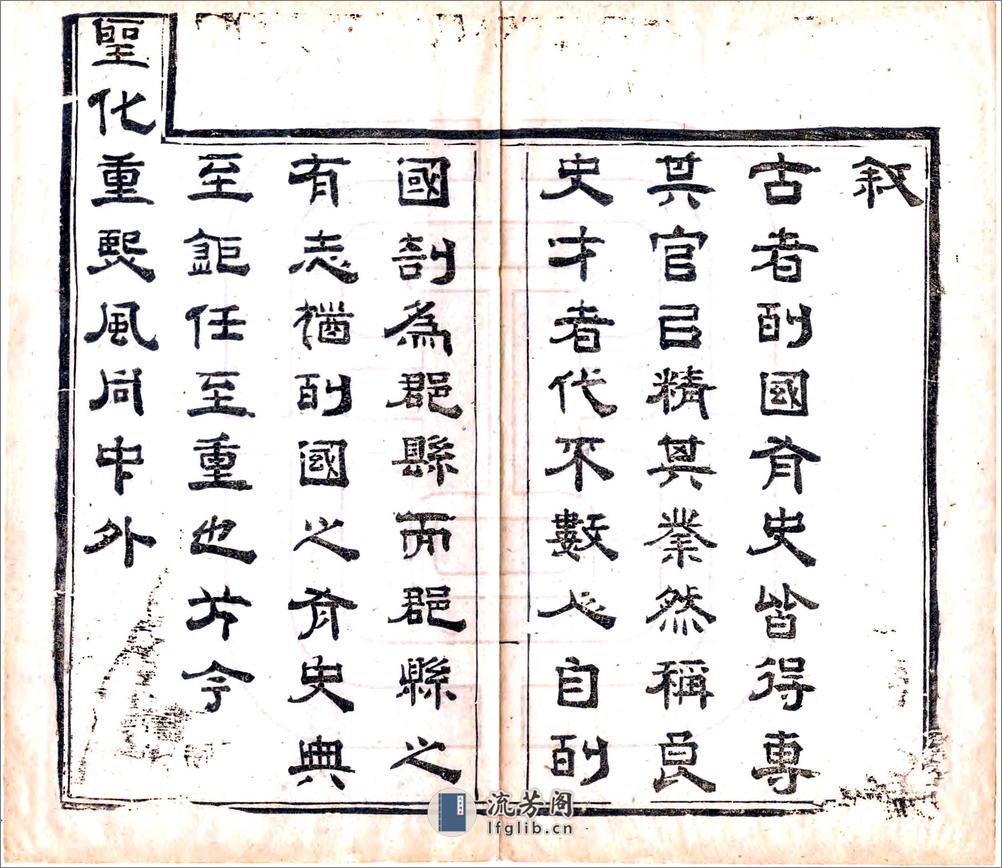 敘
古者列國有史皆得專
其官以精其業然稱良
史才者代不數人自列
國剖為郡縣而郡縣之
有志猶列國之有史典
至鉅任至重也方今
聖化重熙風同中外
流芳阁
lfglib.cn